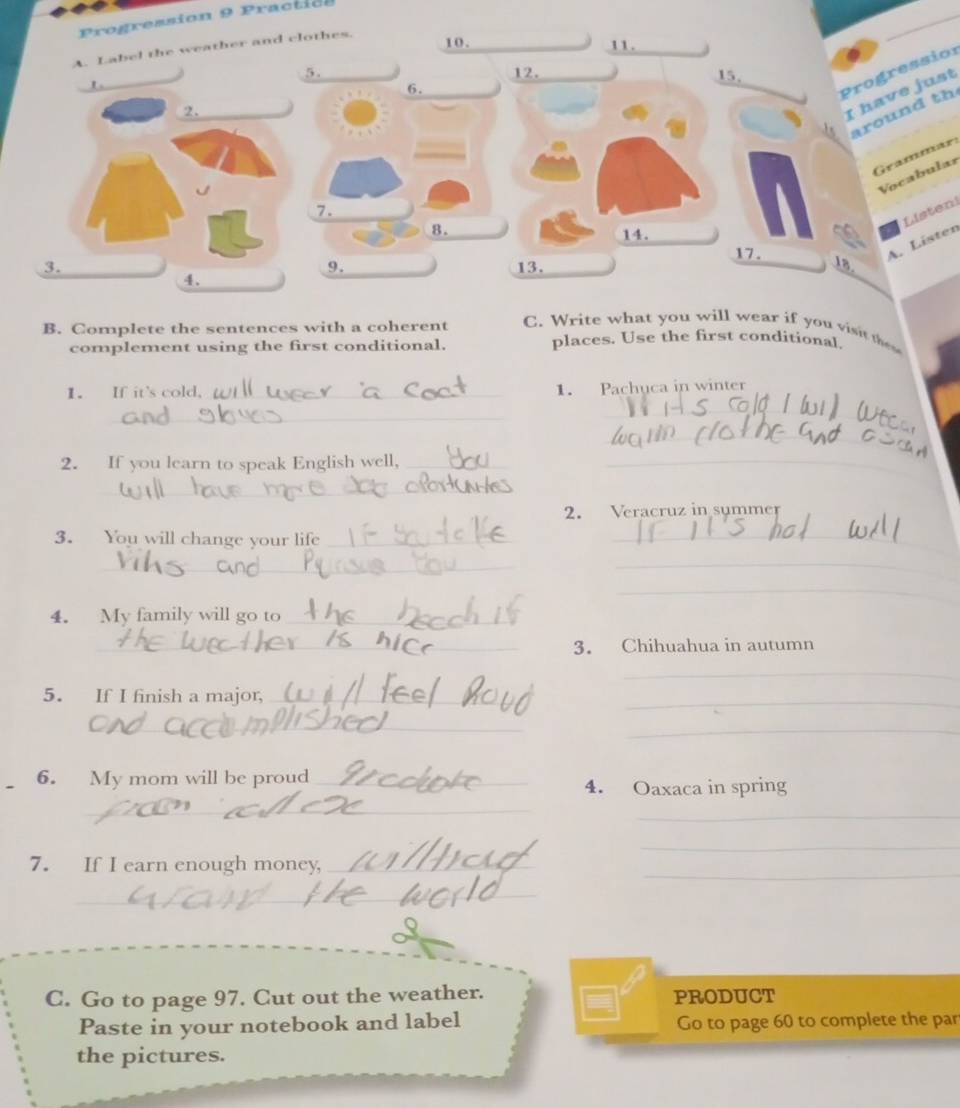 Progression 9 Practice
A. Label the weather and clothes.
1.
2.
3.
4.
5.
6.
7.
8.
9.
10.
11.
12.
13.
14.
15.
17.
18.
Progression
I have just
around the
Grammar:
Vocabular
Listeni
A. Listen
B. Complete the sentences with a coherent
complement using the first conditional.
1. If it's cold, will wear a coat
and gloves
2. If you learn to speak English well, you
will have more oportunites
3. You will change your life If
and you
4. My family will go to the beach if
the weather is nice
5. If I finish a major, will feel Proud
and accomplished
6. My mom will be proud
7. If I earn enough money,
the world
C. Write what you will wear if you visit these
places. Use the first conditional.
1. Pachuca in winter
If it's cold I will wear
warm clothe and
2. Veracruz in summer
If it's hot will
3. Chihuahua in autumn
4. Oaxaca in spring
C. Go to page 97. Cut out the weather.
Paste in your notebook and label
the pictures.
PRODUCT
Go to page 60 to complete the par